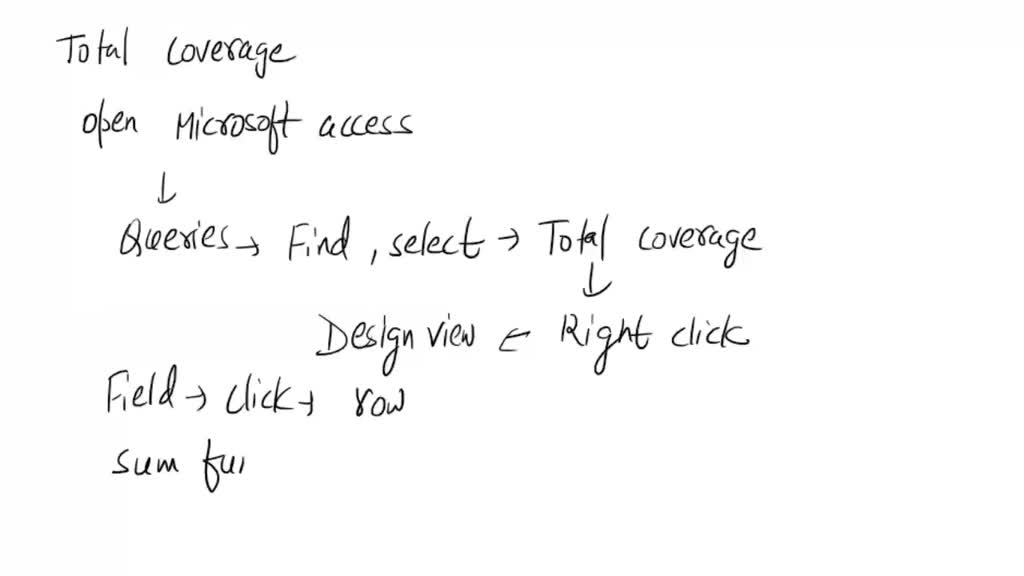 Total coverage
open Microsoft access
↓
Queries → Find, select → Total coverage
↓
Design view ← Right click
Field → click → row
sum fun